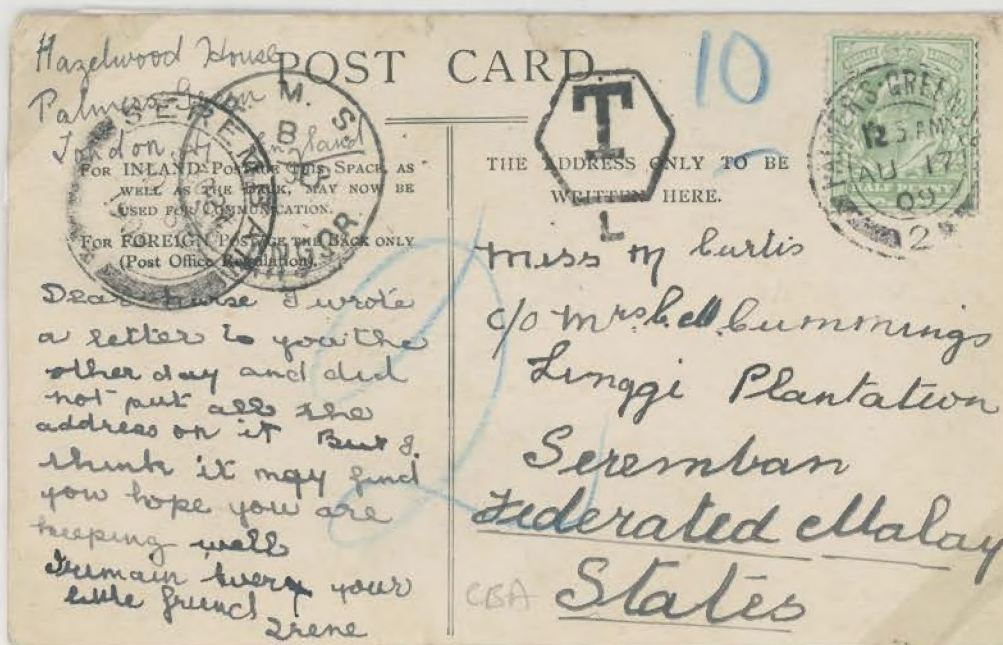 Hazelwood House
Palmers Green
London N England
POST CARD
FOR INLAND POSTAGE THIS SPACE, AS
WELL AS THE BACK, MAY NOW BE
USED FOR COMMUNICATION.
FOR FOREIGN POSTAGE THE BACK ONLY
(Post Office Regulation).
Dear Nurse I wrote
a letter to you the
other day and did
not put all the
address on it But I
think it may find
you hope you are
keeping well
I remain every your
little friend
Irene
SEREMBAN
M. S.
B
T
L
10
THE ADDRESS ONLY TO BE
WRITTEN HERE.
PALMERS-GREEN
12 5 AM
AU 17
09
2
HALF PENNY
Miss M Curtis
c/o Mrs Cummings
Linggi Plantation
Seremban
Federated Malay
States
CBA
2